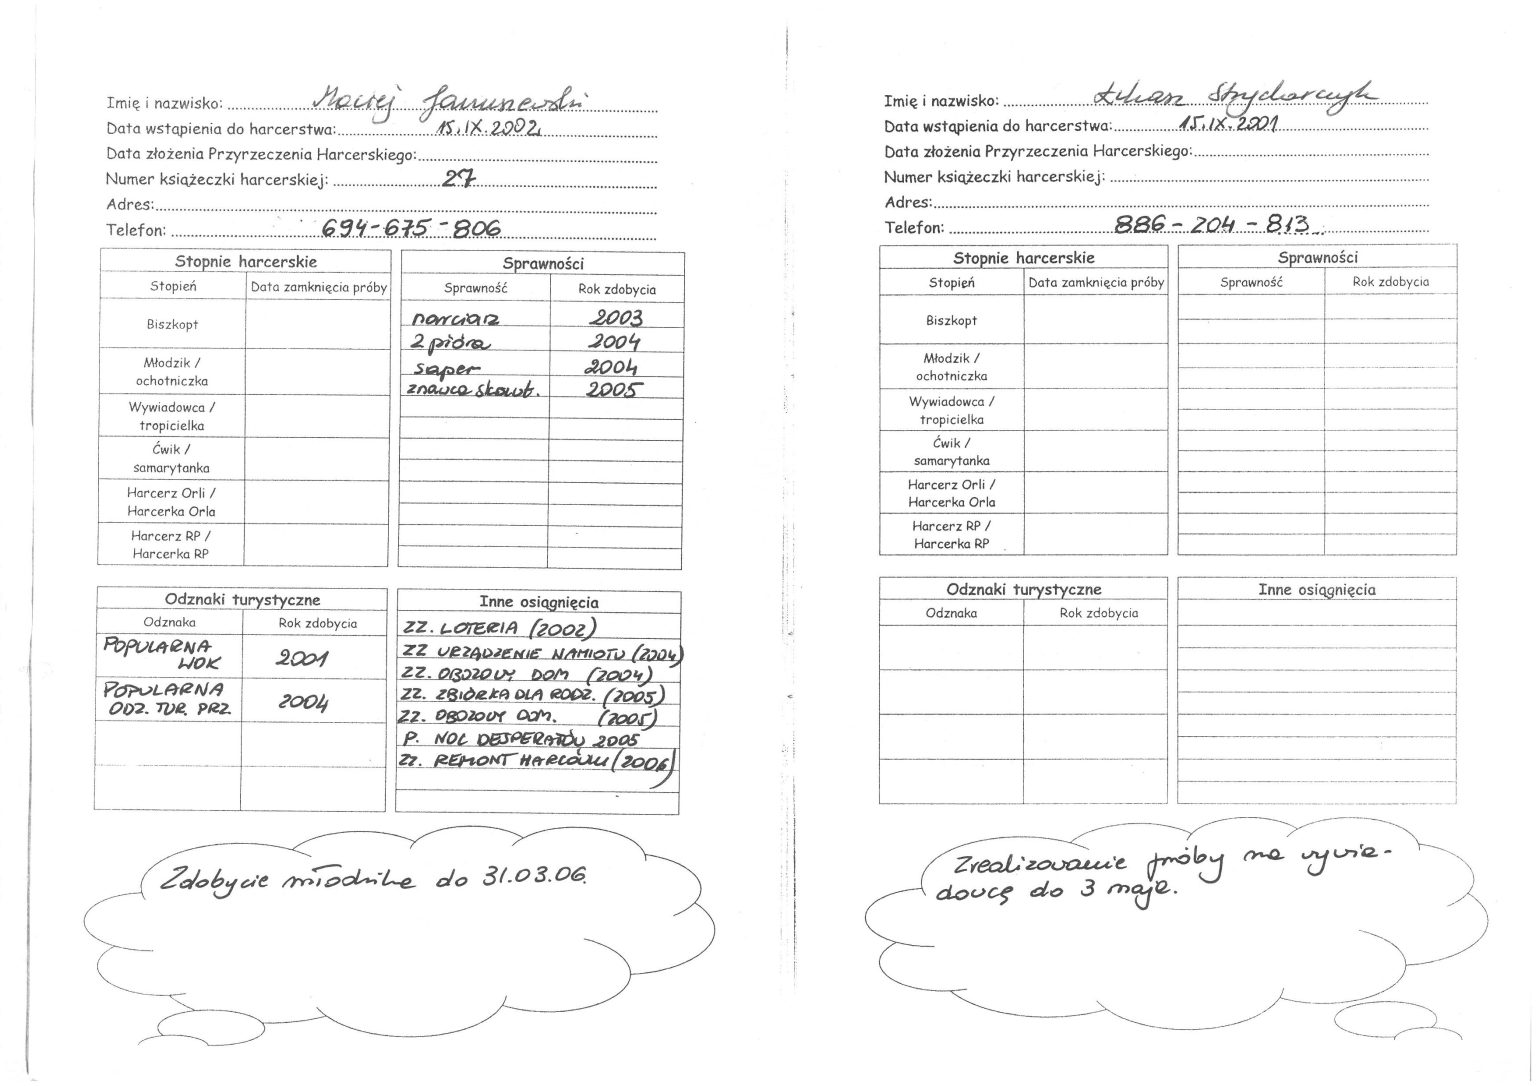 Imię i nazwisko: Maciej Januszewski
Data wstąpienia do harcerstwa: 15.IX.2002
Data złożenia Przyrzeczenia Harcerskiego:
Numer książeczki harcerskiej: 27
Adres:
Telefon: 694-675-806
Stopnie harcerskie
Stopień Data zamknięcia próby
Biszkopt
Młodzik /
ochotniczka
Wywiadowca /
tropicielka
Ćwik /
samarytanka
Harcerz Orli /
Harcerka Orla
Harcerz RP /
Harcerka RP
Sprawności
Sprawność Rok zdobycia
narciarz 2003
2 pióra 2004
saper 2004
znawca skowt. 2005
Odznaki turystyczne
Odznaka Rok zdobycia
POPULARNA
WOK 2001
POPULARNA
ODZ. TUR. PRZ. 2004
Inne osiągnięcia
ZZ. LOTERIA (2002)
ZZ URZĄDZENIE NAMIOTU (2004)
ZZ. OBOZOWY DOM (2004)
ZZ. ZBIÓRKA DLA RODZ. (2005)
ZZ. OBOZOWY DOM. (2005)
P. NOC DESPERATÓW 2005
ZZ. REMONT HARCÓWKI (2006)
Zdobycie młodzika do 31.03.06.
Imię i nazwisko: Łukasz Strycharczyk
Data wstąpienia do harcerstwa: 15.IX.2001
Data złożenia Przyrzeczenia Harcerskiego:
Numer książeczki harcerskiej:
Adres:
Telefon: 886-204-813
Stopnie harcerskie
Stopień Data zamknięcia próby
Biszkopt
Młodzik /
ochotniczka
Wywiadowca /
tropicielka
Ćwik /
samarytanka
Harcerz Orli /
Harcerka Orla
Harcerz RP /
Harcerka RP
Sprawności
Sprawność Rok zdobycia
Odznaki turystyczne
Odznaka Rok zdobycia
Inne osiągnięcia
Zrealizowanie próby na wywia-
dowcę do 3 maja.